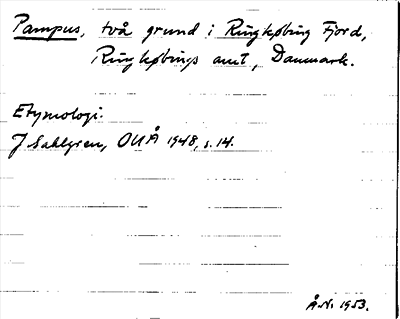 Pampus, två grund i Ringkøbing Fjord,
Ringkøbings amt, Danmark.
Etymologi.
J Sahlgren, OUÅ 1948, s. 14.
Å.N. 1953.